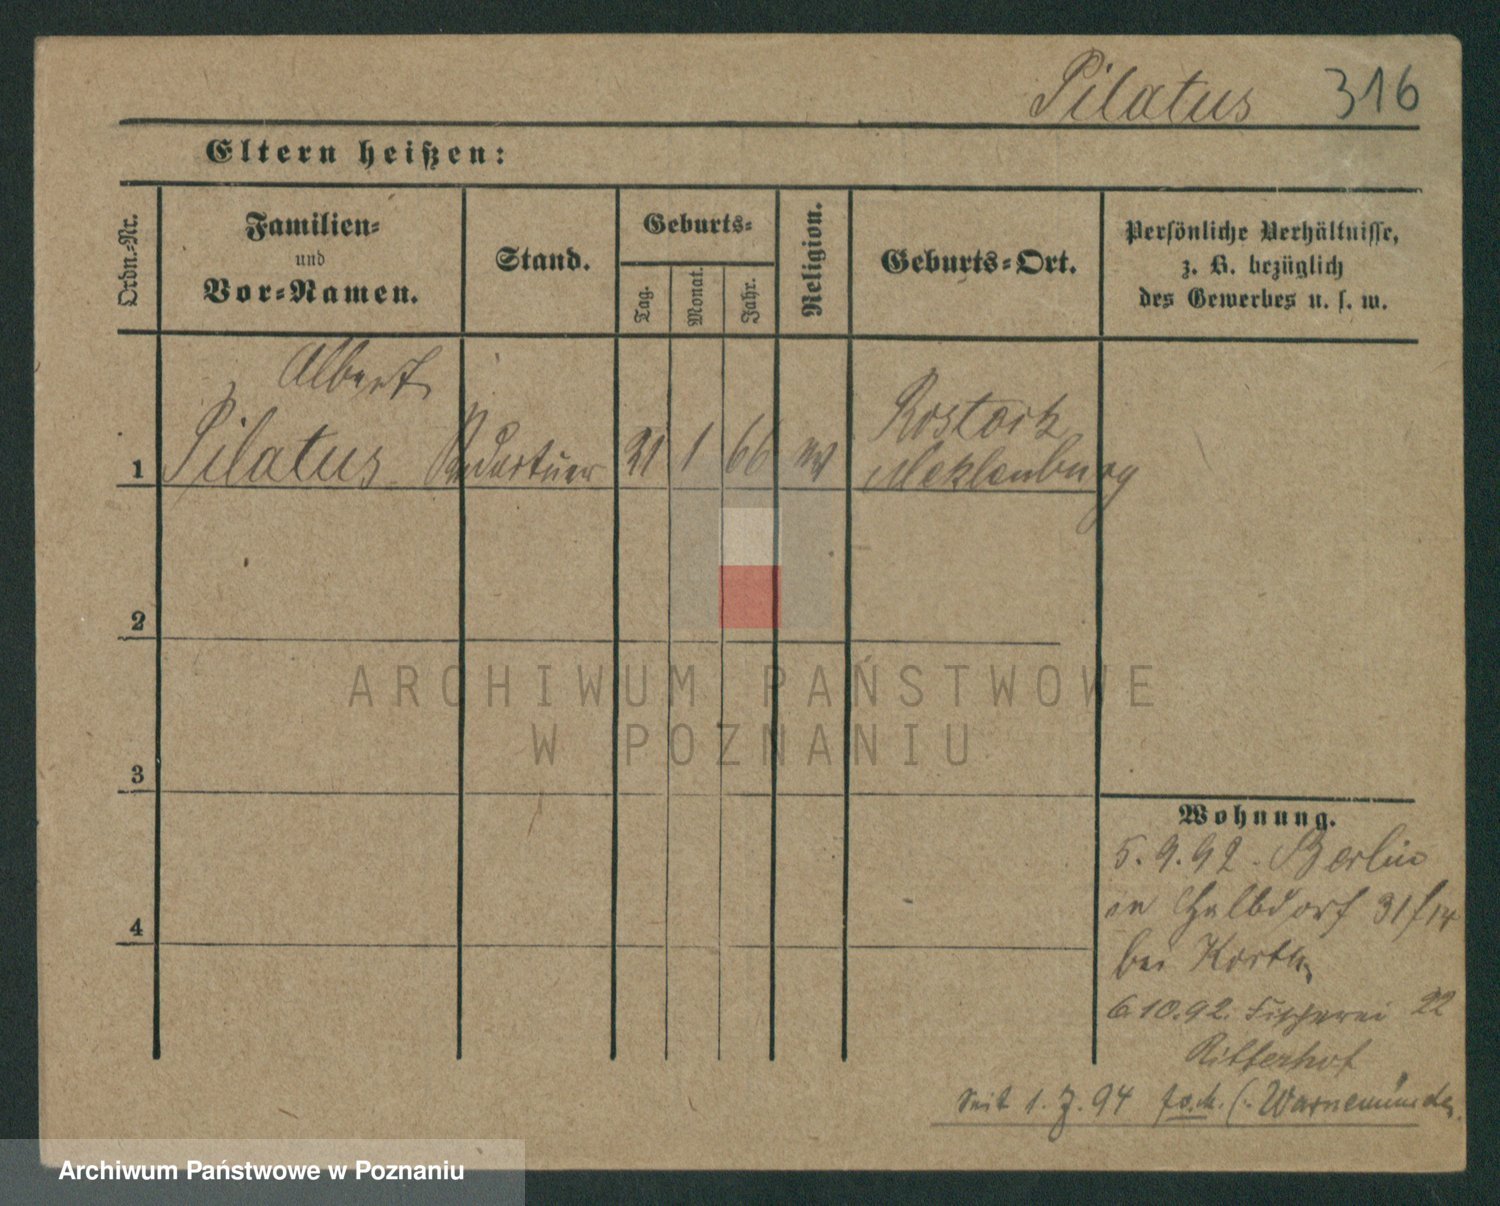 Pilatus 316
Eltern heißen:
Ordn.-Nr.
Familien-
und
Vor-Namen.
Stand.
Geburts-
Tag.
Monat.
Jahr.
Religion.
Geburts-Ort.
Persönliche Verhältnisse,
z. B. bezüglich
des Gewerbes u. s. w.
Albert
1 Pilatus 21 1 66 Rostock
Meklenburg
2
ARCHIWUM PAŃSTWOWE
W POZNANIU
3
Wohnung.
5.9.92. Berlin
31/14
bei Korth
4
6.10.92. Fischerei 22
Ritterhof
Seit 1. 94 Warnemünde
Archiwum Państwowe w Poznaniu